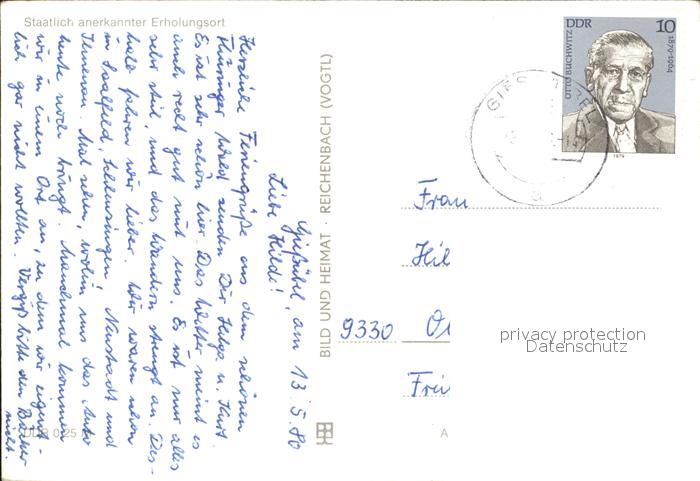 Staatlich anerkannter Erholungsort
Gießübel, am 13.5.80
Liebe Hilde!
Herzliche Feriengrüße aus dem schönen
Thüringer Wald senden Dir Helga u. Kurt.
Es ist sehr schön hier. Das Wetter meint es
auch recht gut mit uns. Es ist nur alles
sehr steil, und das Wandern strengt an. Des-
halb fahren wir lieber. Wir waren schon
in Saalfeld, Schleusingen, Neustadt und
Ilmenau. Mal sehen, wohin uns das Auto
heute noch bringt. Manchmal kommen
wir in einem Ort an, zu dem wir eigent-
lich gar nicht wollten. Vergiß bitte den Bäcker
nicht.
DDR 0,25
BILD UND HEIMAT · REICHENBACH (VOGTL)
A
DDR 10
OTTO BUCHWITZ
1879-1964
1979
Frau
Hil
9330 Ol
privacy protection
Datenschutz